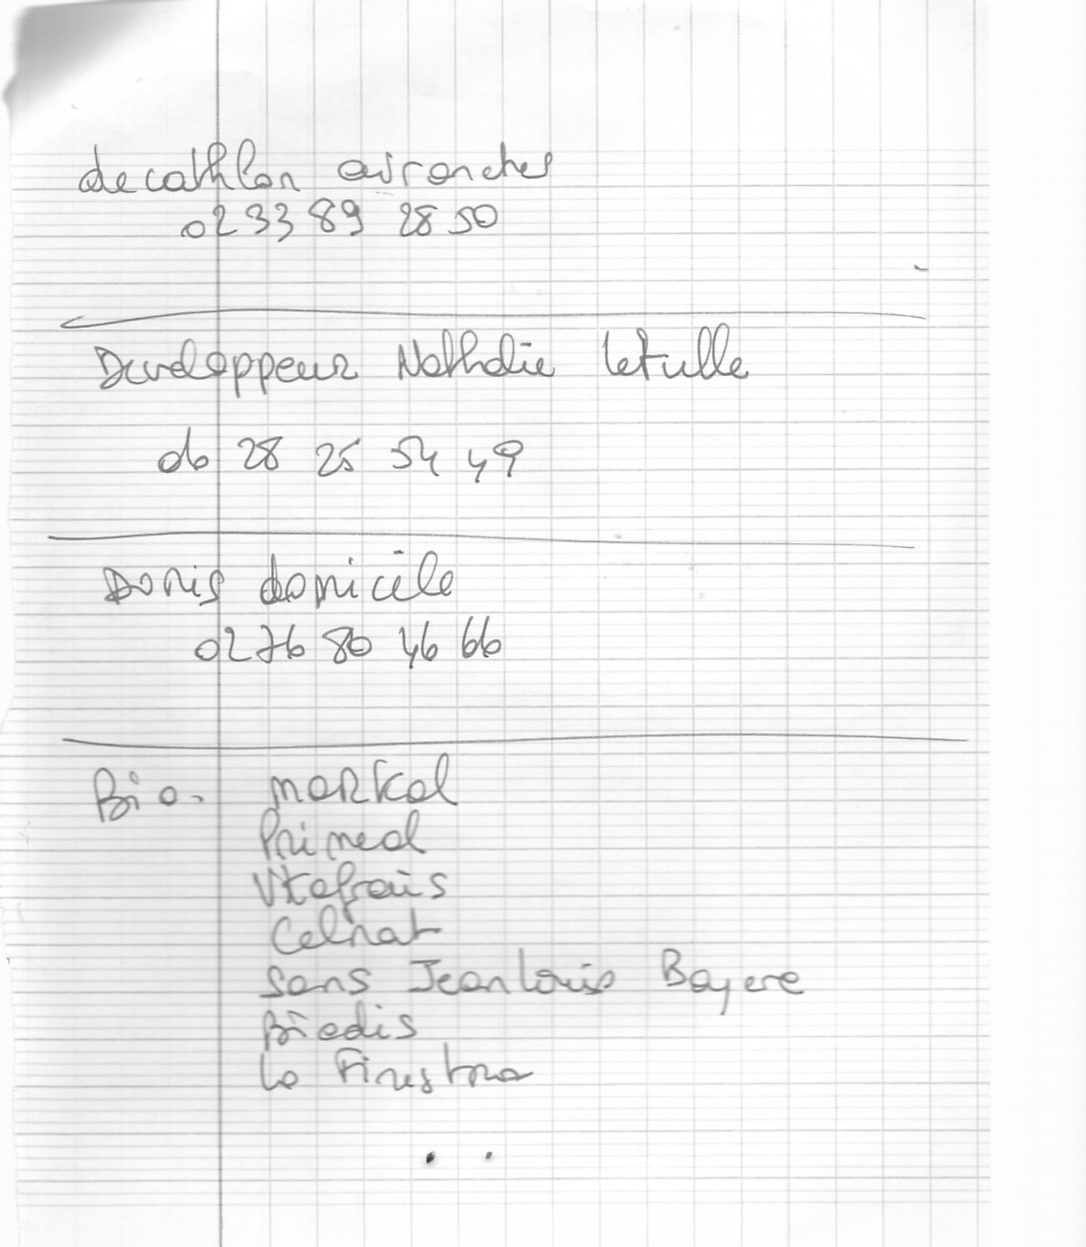 decathlon avranches
02 33 89 28 50
Developpeur Nathalie letulle
06 28 25 54 49
Doris domicile
02 76 80 46 66
Bio. markal
Primeal
Vitafrais
Celnat
sans Jean Louis Bayere
Biodis
la Finestra